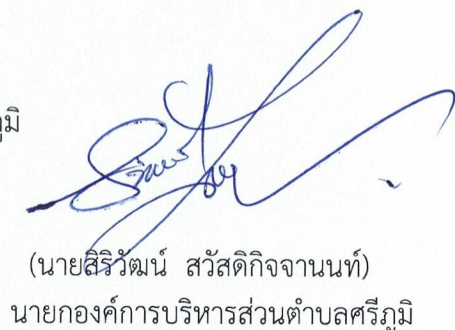 ูมิ
(นายสิริวัฒน์ สวัสดิกิจจานนท์)
นายกองค์การบริหารส่วนตำบลศรีภูมิ